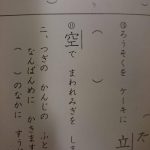 ⑬ろうそくを ケーキに 立
(　)
⑪空で まわれみぎを し
(　)
二、つぎの かんじの ふと
なんばんめに かきます
(　)のなかに すう